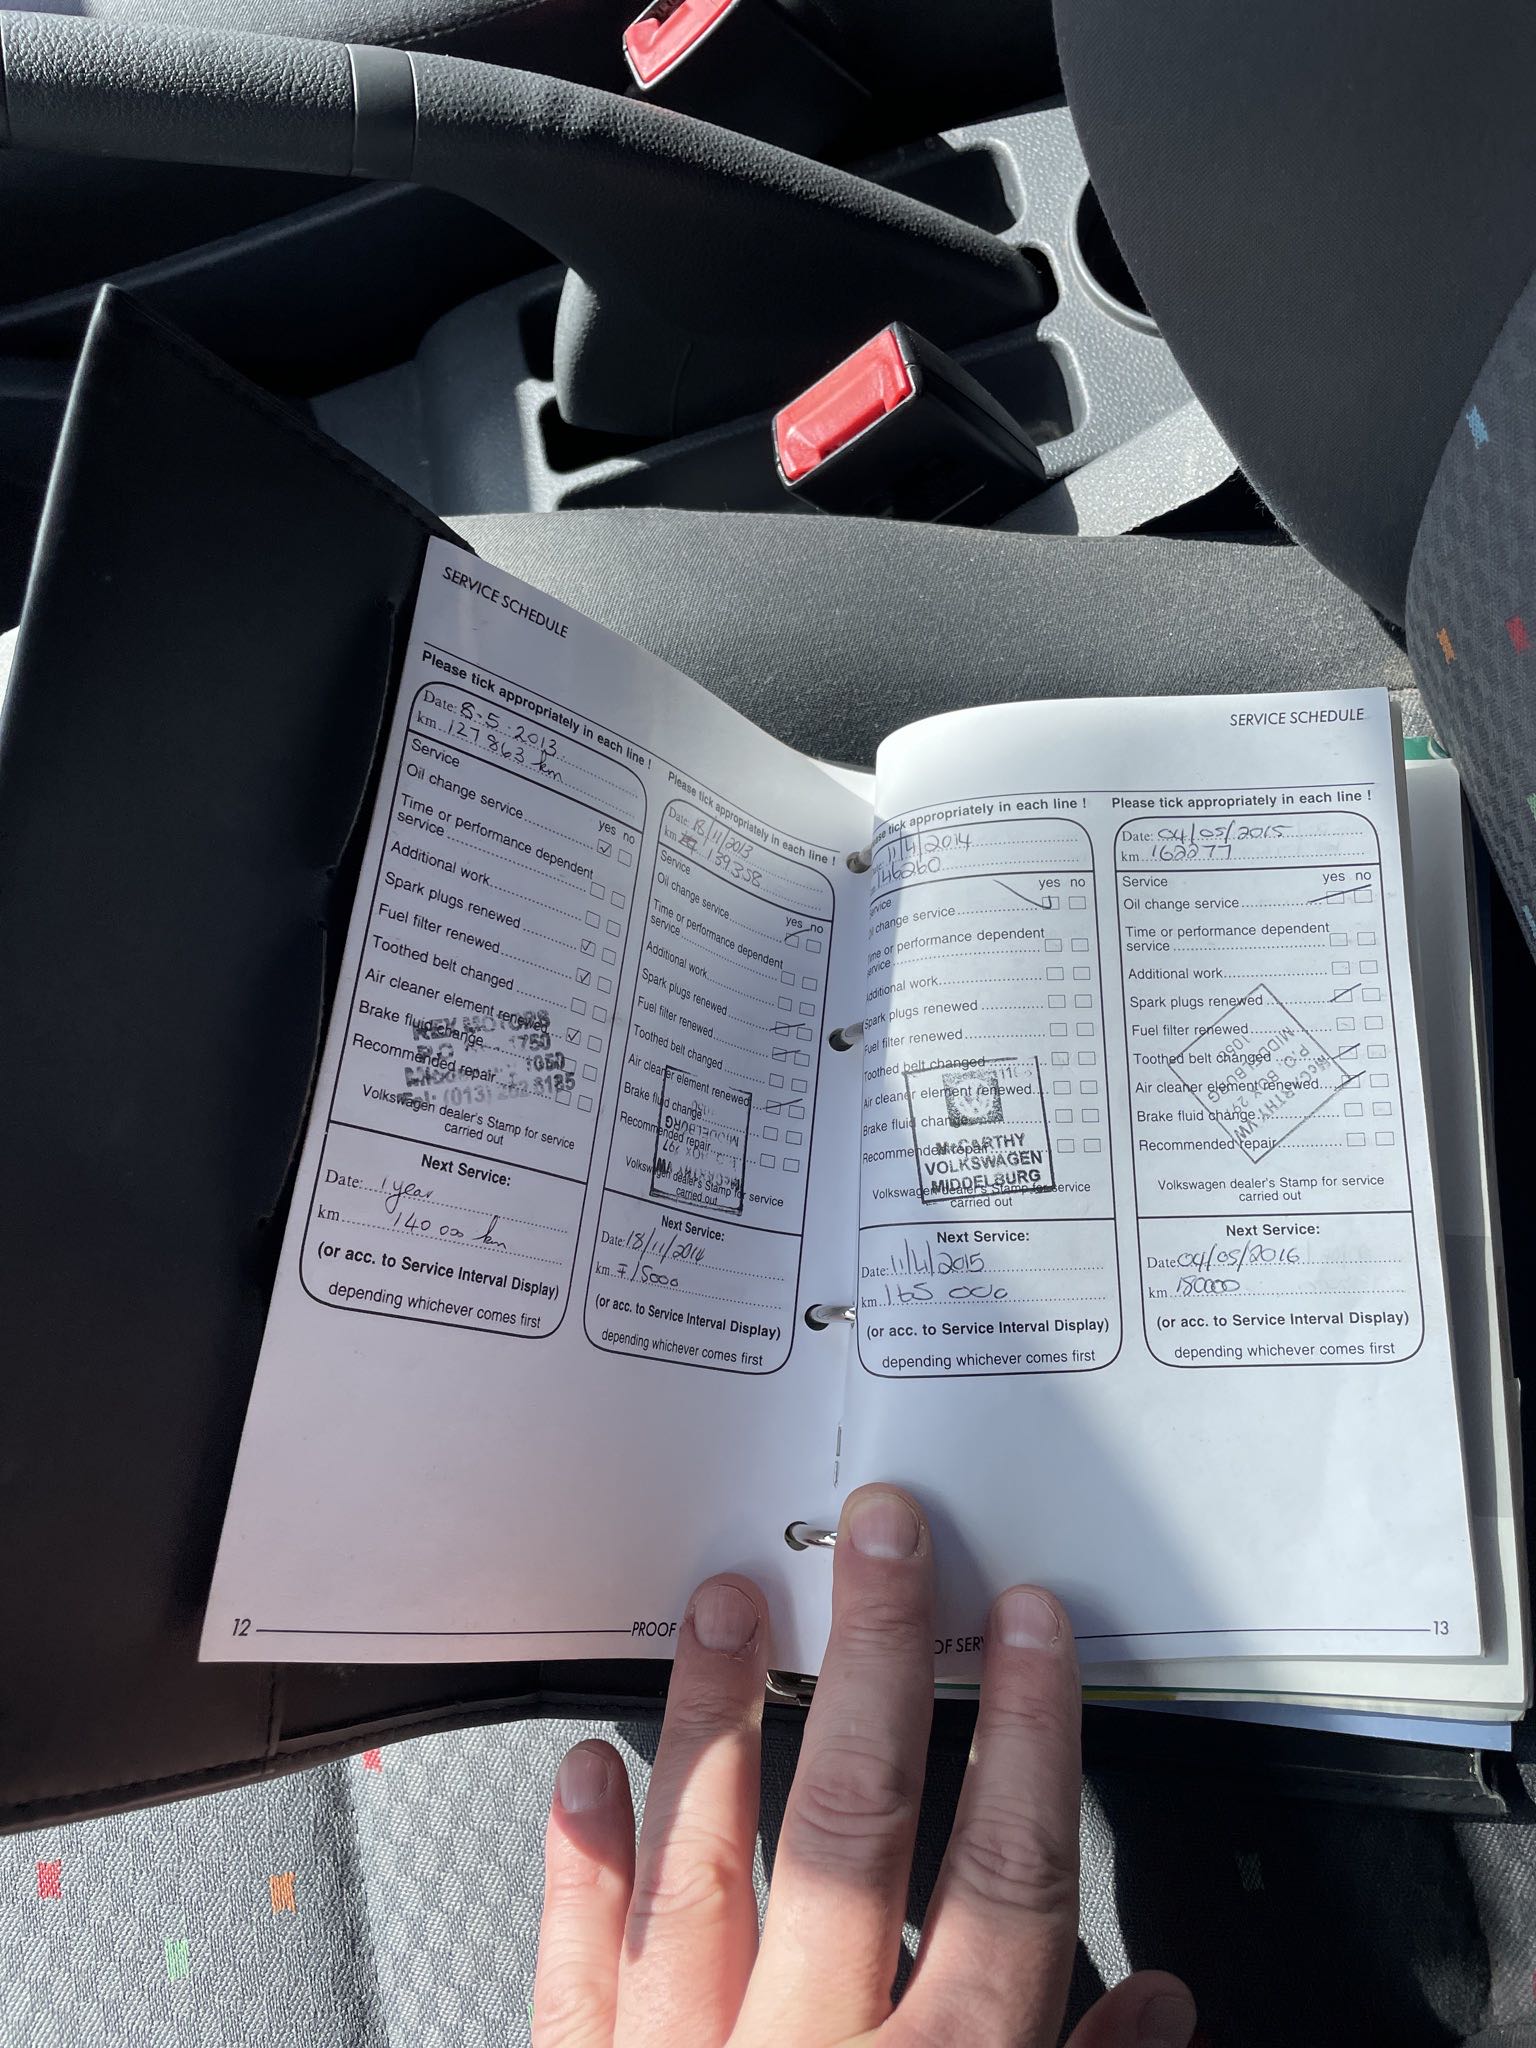 SERVICE SCHEDULE
Please tick appropriately in each line !
Date: 8.5.2013
km 127863 km
Service
yes no
Oil change service
Time or performance dependent
service
Additional work
Spark plugs renewed
Fuel filter renewed
Toothed belt changed
Air cleaner element renewed
Brake fluid change
Recommended repair
MOTORS
1750
1050
Tel: (013)
Volkswagen dealer's Stamp for service
carried out
Next Service:
Date: 1 year
km 140 000 km
(or acc. to Service Interval Display)
depending whichever comes first
Please tick appropriately in each line !
Date: 18/11/2013
km 139358
Service
yes no
Oil change service
Time or performance dependent
service
Additional work
Spark plugs renewed
Fuel filter renewed
Toothed belt changed
Air cleaner element renewed
Brake fluid change
Recommended repair
MIDDELBURG
Volkswagen dealer's Stamp for service
carried out
Next Service:
Date: 18/11/2014
km
(or acc. to Service Interval Display)
depending whichever comes first
12
PROOF
SERVICE SCHEDULE
tick appropriately in each line !
11/4/2014
146260
yes no
change service
or performance dependent
Additional work
Spark plugs renewed
Fuel filter renewed
Toothed belt changed
Air cleaner element renewed
Brake fluid change
Recommended repair
McCARTHY
VOLKSWAGEN
MIDDELBURG
Volkswagen dealer's Stamp for service
carried out
Next Service:
Date: 11/4/2015
km 165 000
(or acc. to Service Interval Display)
depending whichever comes first
Please tick appropriately in each line !
Date: 04/05/2015
km 162277
Service
yes no
Oil change service
Time or performance dependent
service
Additional work
Spark plugs renewed
Fuel filter renewed
Toothed belt changed
Air cleaner element renewed
Brake fluid change
Recommended repair
McCARTHY VW
MIDDELBURG
1050
Volkswagen dealer's Stamp for service
carried out
Next Service:
Date: 04/05/2016
km 180000
(or acc. to Service Interval Display)
depending whichever comes first
OF SERV
13